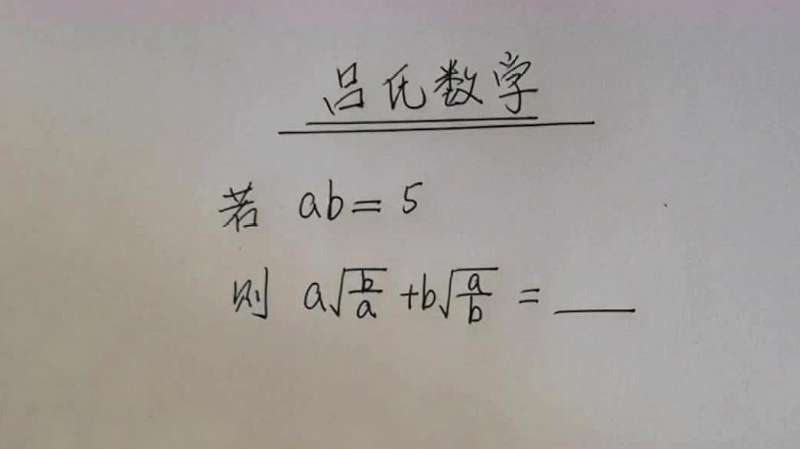 吕氏数学
若 ab = 5
则 a√(b/a) + b√(a/b) = ___